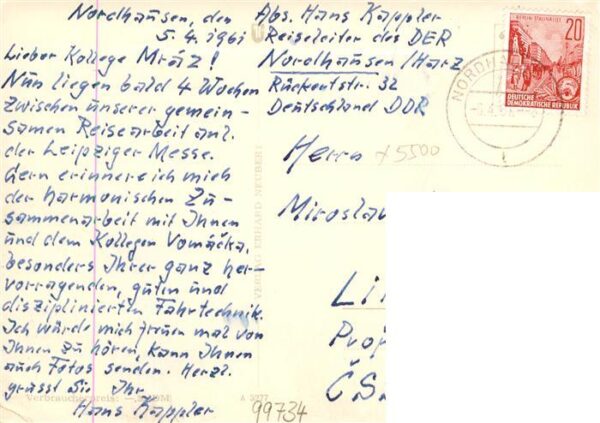 Nordhausen, den
5.4.1961
Lieber Kollege Mráz!
Nun liegen bald 4 Wochen
zwischen unserer gemein-
samen Reisearbeit anl.
der Leipziger Messe.
Gern erinnere ich mich
der harmonischen Zu-
sammenarbeit mit Ihnen
und dem Kollegen Vomáčka,
besonders Ihrer ganz her-
vorragenden, guten und
disziplinierten Fahrtechnik.
Ich würde mich freuen mal von
Ihnen zu hören, kann Ihnen
auch Fotos senden. Herzl.
grüsst Sie Ihr
Hans Kappler
Verbraucherpreis:
A 3277
99734
VERLAG ERHARD NEUBERT
Abs. Hans Kappler
Reiseleiter des DER
Nordhausen/Harz
Rückertstr. 32
Deutschland DDR
Herrn
+5500
Miroslav
Li
Pro
ČS
BERLIN STALINALLEE
20
DEUTSCHE
DEMOKRATISCHE REPUBLIK
NORDH